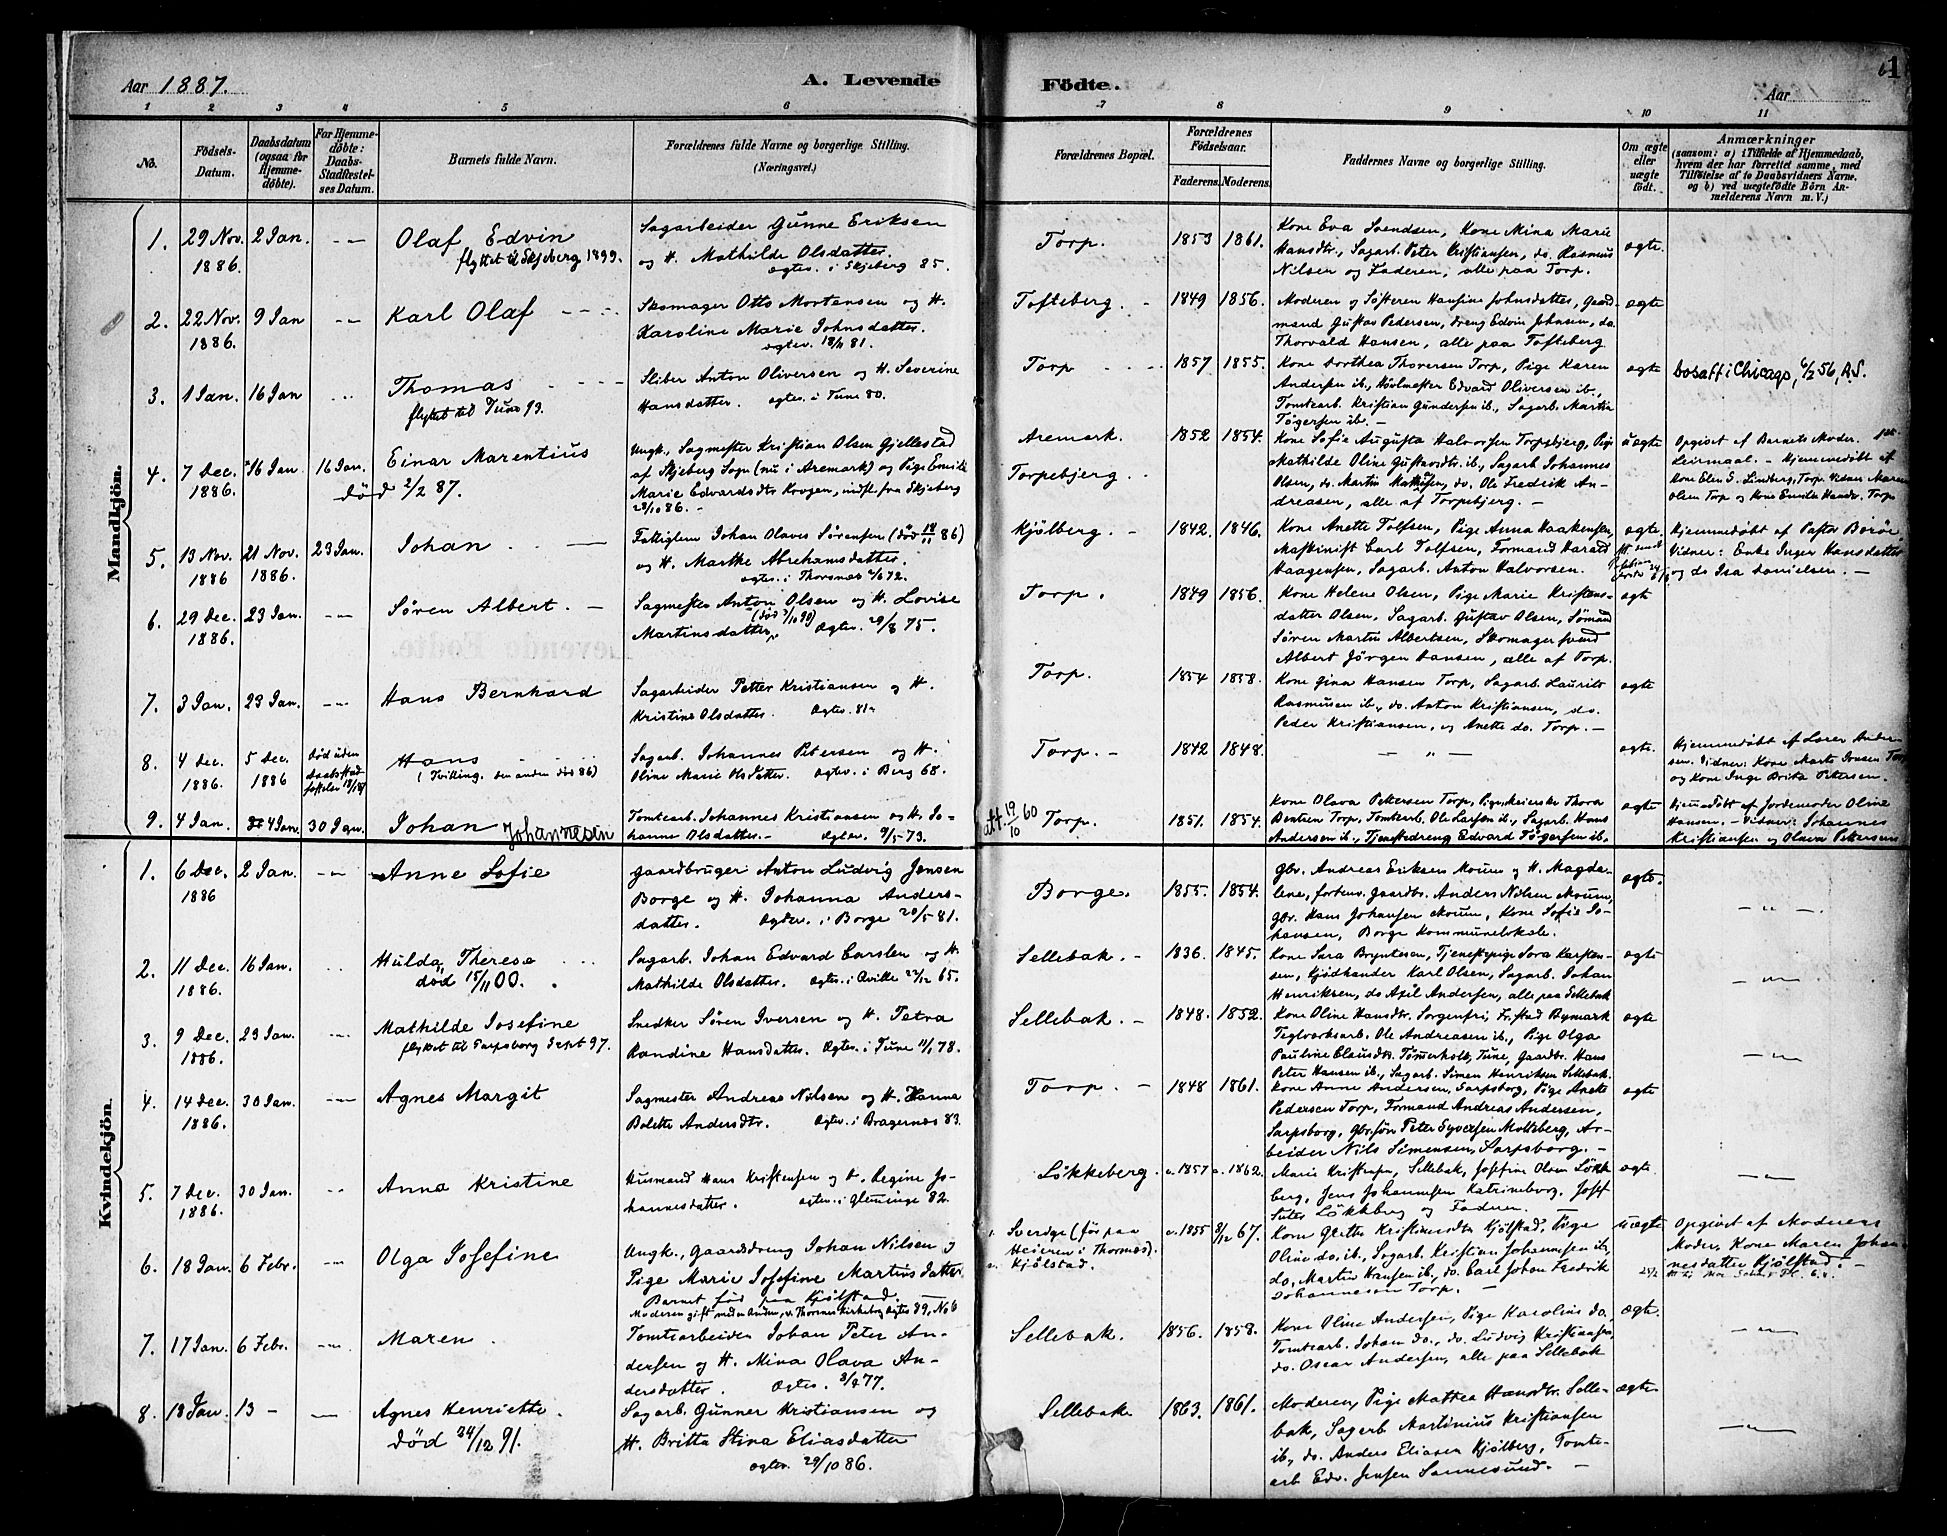 Aar 1887.
A. Levende
Fødte.
Aar
1
1 2 3 4 5 6 7 8 9 10 11
No.
Fødsels-Datum.
Daabsdatum (ogsaa for Hjemme-døbte).
For Hjemme-døbte: Daabs-Stadfæstel-ses Datum.
Barnets fulde Navn.
Forældrenes fulde Navne og borgerlige Stilling. (Næringsvei.)
Forældrenes Bopæl.
Forældrenes Fødselsaar.
Faderens. Moderens.
Faddernes Navne og borgerlige Stilling.
Om ægte eller uægte født.
Anmærkninger
(saasom: a) i Tilfælde af Hjemmedaab, hvem der har forrettet samme, med Tilføielse af to Daabsvidners Navne, og b) ved uægtefødte Børn An-melderens Navn m. V.)
Mandkjøn.
1. 29 Nov. 1886. 2 Jan. Olaf Edvin
flyttet til Skjeberg 1899.
Sagarbeider Gunne Eriksen
og H. Mathilde Olsdatter.
ægtev. i Skjeberg 85.
Torp. 1853 1861.
Kone Eva Svendsen, Kone Mina Marie
Hansdtr., Sagarb. Peter Kristiansen, do. Rasmus
Nilsen og Faderen, alle paa Torp.
ægte.
2. 22 Nov. 1886. 9 Jan Karl Olaf
Skomager Otto Mortensen og H.
Karoline Marie Johnsdatter.
Tofteberg. 1849 1856.
Moderen og Søsteren Hansine Johnsdatter, Gaard-
mand Gustav Pedersen, Dreng Edvin Johnsen, do.
Thorvald Hansen, alle paa Tofteberg
ægte
3. 1 Jan. 16 Jan Thomas
flyttet til Tune 93.
Sliber Anton Oliversen og H. Severine
Hansdatter. ægtev. i Tune 80.
Torp 1857 1855.
Kone Dorthea Thoresen Torp, Pige Karen
Andersen ib., Høvlmester Edvard Oliversen ib.,
Tomtearb. Kristian Gundersen ib., Sagarb. Martin
Tøgersen ib.
ægte
bosatt i Chicago, 6/2 56, A.S.
4. 7 Dec. 1886. 16 Jan 16 Jan. Einar Marentius
død 2/2 87.
Ungk. Sagmester Kristian Olsen Gjellestad
af Skjeberg Sogn (nu i Aremark) og Pige Emilie
Marie Edvardsdtr. Krogen, indfl. fra Skjeberg
28/10 86.
Aremark.
Torpebjerg.
1852 1854.
Kone Sofie Augusta Halvorsen Torpebjerg, Pige
Mathilde Oline Gustavsdtr. ib., Sagarb. Johannes
Olsen, do. Martin Mathisen, do. Ole Fredrik An-
dreasen, alle af Torpebjerg.
uægte
Opgivet af Barnets Moder.
Leirmaal. - Hjemmedøbt af
Kone Elen S. Lindberg, Torp. Vidner Maren
Olsen Torp og Kone Emilie Hansen Torp
5. 13 Nov. 1886 21 Nov. 1886. 23 Jan. Johan
Fattiglem Johan Olaves Sørensen (død 18/11 86)
og H. Marthe Abrahamsdatter.
ægtev. i Thorsnæs
Kjølberg. 1842. 1846.
Kone Anette Tolfsen, Pige Anna Haakensen,
Maskinist Carl Tolfsen, Formand Harald
Haagensen, Sagarb. Anton Halvorsen.
ægte.
Hjemmedøbt af Pastor Borøe
Vidner: Enke Inger Hansdatter
og do Isa Danielsen.
6. 29 Dec. 1886. 23 Jan. Søren Albert.
Sagmester Anton Olsen og H. Lovise
Martinsdatter. Ægtev. 29/8 75.
Torp. 1849 1856.
Kone Helene Olsen, Pige Marie Kristens-
datter Olsen, Sagarb. Gustav Olsen, Sømand
Søren Martin Albertsen, Skomagersvend
Albert Jørgen Hansen, alle af Torp.
ægt
7. 3 Jan. 23 Jan. Hans Bernhard
Sagarbeider Petter Kristiansen og H.
Kristine Olsdatter. Ægtev. 81.
Torp. 1854 1858.
Kone Gina Hansen Torp, Sagarb. Laurits
Rasmusen ib., do. Anton Kristiansen, do.
Peder Kristiansen, og Anette do. Torp.
ægte
8. 4 Dec. 1886 5 Dec. 1886
Død uden Daabsstad-
Hans
(Tvilling, den anden død 86)
Sagarb. Johannes Petersen og H.
Oline Marie Olsdatter. Ægtev. i Berg 68.
Torp. 1842 1848.
ægte.
Hjemmedøbt af Lærer Ander-
sen. Vidner: Kone Marte Jonsen Torp
og Kone Inge Brita Petersen.
9. 4 Jan. 4 Jan. 30 Jan. Johan Johannesen
Tomtearb. Johannes Kristiansen og H. Jo-
hanne Olsdatter. Ægtev. 73.
att. 19/10 60 Torp. 1851. 1854.
Kone Olava Pettersen Torp, Pige, Meierske Thora
Bentsen Torp, Tomtearb. Ole Larsen ib., Sagarb. Hans
Andersen ib., Tjenestedreng Edvard Tøgersen ib.
ægte
Hjemmedøbt af Jordemoder Oline
Hansen. - Vidner: Johannes
Kristiansen og Olava Pettersen
Kvindekjøn.
1. 6 Dec. 1886 2 Jan. Anne Sofie
Gaardbruger Anton Ludvig Jensen
Borge og H. Johanna Anders-
datter. Ægtev. i Borge 20/5 81.
Borge. 1855. 1854.
Gbr. Andreas Eriksen Moum og H. Magda-
lene, forhenv. Gaardbr. Anders Nilsen Moum,
Gbr. Hans Johansen Moum, Kone Sofie Jo-
hansen, Borge Kommunelokale.
ægte.
2. 11 Dec. 1886. 16 Jan. Hulda Therese
død 15/11 00.
Sagarb. Johan Edvard Carslen og H.
Mathilde Olsdatter. ægtev. i Qville 27/12 65.
Sellebak. 1836. 1845.
Kone Sara Bryntesen, Tjenestepige Sora Karsten-
sen, Kjødhandler Karl Olsen, Sagarb. Johan
Henriksen, do Axil Andersen, alle paa Sellebak
ægte
3. 9 Dec. 1886. 23 Jan. Mathilde Josefine
flyttet til Sarpsborg Sept 97.
Snedker Søren Iversen og H. Petra
Randine Hansdatter. Ægtev. i Tune 11/1 78.
Sellebak. 1848. 1852.
Kone Oline Hansdtr. Sorgenfri, Fr.stad Bymark
Teglværksarb. Ole Andreasen ib., Pige Olga
Pauline Clausdtr. Tømerholt, Tune, Gaardbr. Hans
Peter Hansen ib., Sagarb. Simen Henriksen Sellebak.
ægte
4. 14 Dec. 1886. 30 Jan. Agnes Margit
Sagmester Andreas Nilsen og H. Hanna
Bolette Andersdtr. Ægtev. i Bragernæs 83.
Torp. 1848 1861.
Kone Anne Andersen, Sarpsborg, Pige Anette
Pedersen Torp, Formand Andreas Andersen,
Sarpsborg, Gbr.søn Peter Syversen Molteberg, Ar-
beider Nils Simensen, Sarpsborg.
ægte
5. 7 Dec. 1886. 30 Jan. Anna Kristine
Husmand Hans Kristensen og H. Regine Jo-
hannesdatter. ægtev. i Glemminge 82.
Løkkeberg. c. 1857 c. 1862.
Marie Kristensen, Sellebak, Josefine Olsen Løkk
berg, Jens Johannesen Katrineborg, Josef
Løkkberg og Faderen.
ægte.
6. 18 Jan. 6 Febr. Olga Josefine
Ungk., Gaardsdreng Johan Nilsen og
Pige Marie Josefine Martinsdatter
Barnet fød paa Kjølstad.
Sverige (før paa
Heieren i Thorsnæs).
Kjølstad.
c. 1855 8/12 67.
Kone Grethe Kristiansdtr Kjølstad, Pige
Oline do. ib., Sagarb. Kristian Johannesen ib.,
do. Martin Hansen ib., do. Carl Johan Fredrik
Johannesen Torp.
Uægte
Opgivet af Moderens
Moder, Kone Maren Johan-
nesdatter Kjølstad.
7. 17 Jan. 6 Febr. Maren
Tomtearbeider Johan Peter An-
dersen og H. Mina Olava An-
dersdatter. Ægtev. 77.
Sellebak. 1856. 1858.
Kone Oline Andersen, Pige Karoline do,
Tomtearb. Johan do., do. Ludvig Kristiansen,
do. Oscar Andersen, alle paa Sellebak
Ægte.
8. 13 Jan. 13 - Agnes Henriette.
død 24/12 91.
Sagarb. Gunner Kristiansen og
H. Britta Stina Eliasdatter
ægtev. 29/10 86.
Sellebak 1863. 1861.
Moderen, Pige Mathea Hansdtr. Selle-
bak, Sagarb Martinius Kristiansen
ib., do. Anders Eliasen Kjølberg, Tomte-
arb Edv. Jensen Sannesund.
ægte.